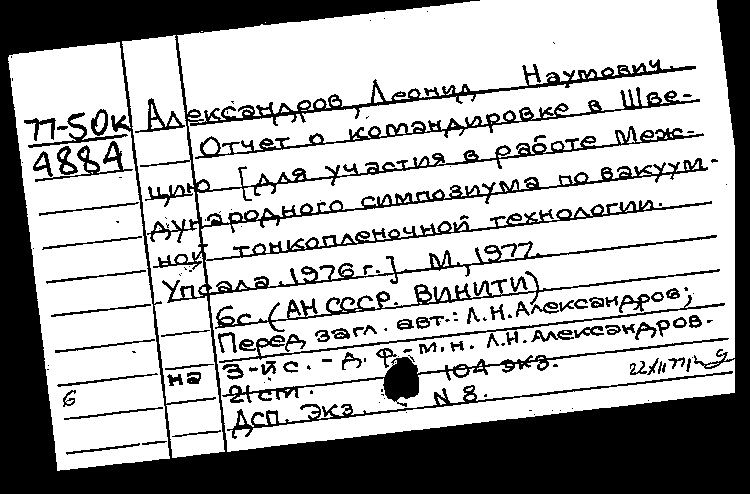 77-50к
4884
Александров, Леонид Наумович.
Отчет о командировке в Шве-
цию [для участия в работе Меж-
дународного симпозиума по вакуум-
ной тонкопленочной технологии.
Упсала. 1976 г.]. М., 1977.
6с. (АН СССР. ВИНИТИ).
Перед загл. авт.: Л.Н.Александров;
на 3-й с. - д. ф.-м.н. Л.Н.Александров.
21 см. 104 экз.
6
Дсп. Экз. N 8.